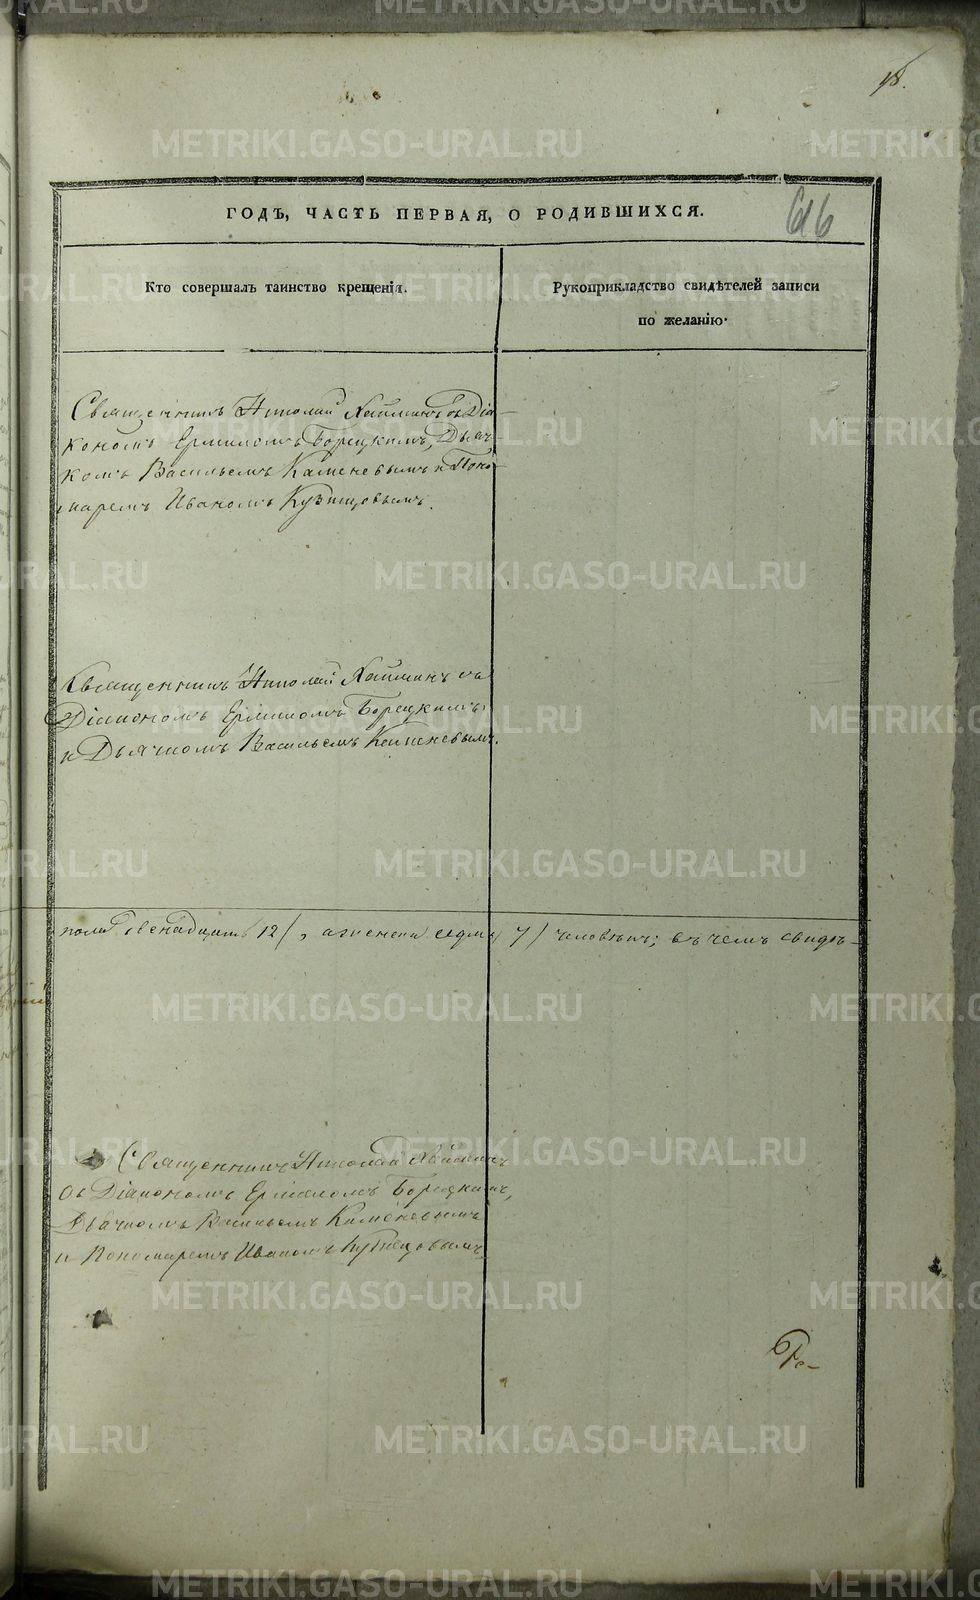 18.
616
ГОДЪ, ЧАСТЬ ПЕРВАЯ, О РОДИВШИХСЯ.
Кто совершалъ таинство крещенія.
Рукоприкладство свидѣтелей записи
по желанію.
Священникъ Николай Хлынинъ съ Діа-
кономъ Ермиломъ Борецкимъ, Дьяч-
комъ Васильемъ Каменевымъ и Поно-
маремъ Иваномъ Кузнецовымъ.
Священникъ Николай съ
Діакономъ Ермиломъ Борецкимъ
и Дьячкомъ Васильемъ Каменевымъ.
пола двенадцать 12/, а женска седмь 7/ человѣкъ; въ чемъ свидѣ-
Священникъ Николай
съ Діакономъ Ермиломъ Борецкимъ,
Дьячкомъ Васильемъ Каменевымъ
и Пономаремъ Иваномъ Кузнецовымъ
METRIKI.GASO-URAL.RU